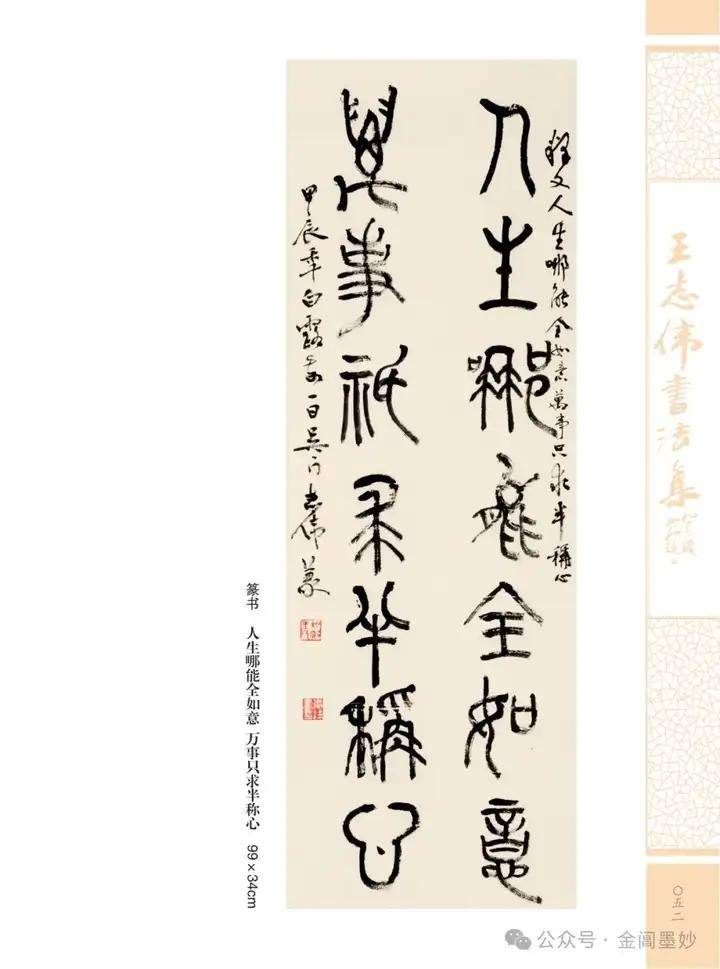 人生哪能全如意
萬事祇求半稱心
釋文人生哪能全如意萬事只求半稱心
甲辰年白露前一日吳門志偉篆
篆书 人生哪能全如意 万事只求半称心 99×34cm
王志伟书法集
〇五二
公众号·金阊墨妙